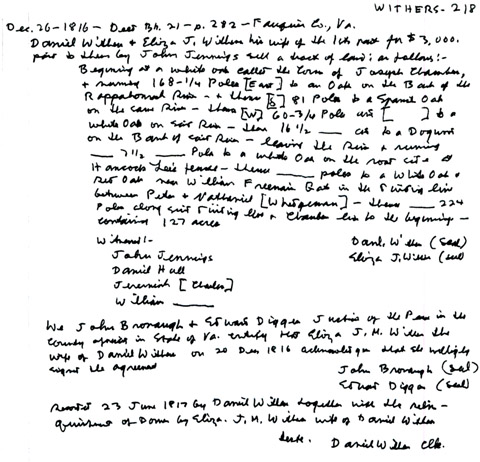 WITHERS-218
Dec. 26-1816 - Deed Bk. 21-p. 282 - Fauquier Co., Va.
Daniel Withers & Eliza J. Withers his wife of the 1st part for $3,000.
paid to them by John Jennings sell a tract of land: as follows:-
Beginning at a white oak called the corner of Joseph Chamber,
& running 168-1/4 Poles [East] to an Oak on the Bank of the
Rappahannock River - & thence [S] 81 Poles to a Spanish Oak
on the same River - thence [W] 60-3/4 Poles [ ] to a
White Oak on said River - then 16 1/2 ___ to a Dogwood
on the Bank of said River - leaving the River & running
___ 7 1/2 ___ Poles to a white Oak on the road at
Hancock Lee's fence - thence ___ poles to a White Oak &
Red Oak near William Freeman Gate in the dividing line
between Peter & Nathaniel - thence ___ 224
Poles along said dividing line & Chamber line to the beginning -
contains 127 acres
Witness:-
Danl. Withers (seal)
John Jennings
Eliza J. Withers (seal)
Daniel Hall
Jeremiah [Charles]
William ___
We John Bronaugh & Edward Digges Justices of the Peace in the
County aforesaid in State of Va. certify that Eliza J. H. Withers the
wife of Daniel Withers on 20 Dec 1816 acknowledges that she willingly
signed the agreement
John Bronaugh (seal)
Edward Digges (seal)
Recorded 23 June 1817 by Daniel Withers together with the relin-
quishment of Dower by Eliza. J. H. Withers wife of Daniel Withers
Daniel Withers Clk.